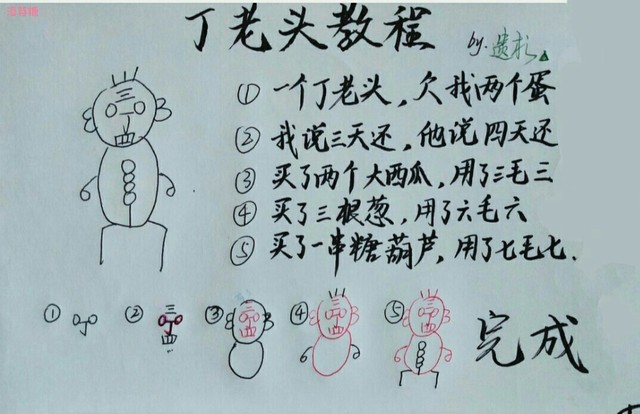 丁老头教程
by.遗杉
① 一个丁老头，欠我两个蛋
② 我说三天还，他说四天还
③ 买了两个大西瓜，用了三毛三
④ 买了三根葱，用了六毛六
⑤ 买了一串糖葫芦，用了七毛七.
① ② ③ ④ ⑤ 完成